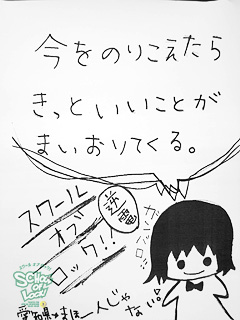 今をのりこえたら
きっといいことが
まいおりてくる。
スクール
オブ
ロック!!
逆電
ガンバロー
SCHOOL
OF
LOCK!
愛知県 まほー 一人じゃない!